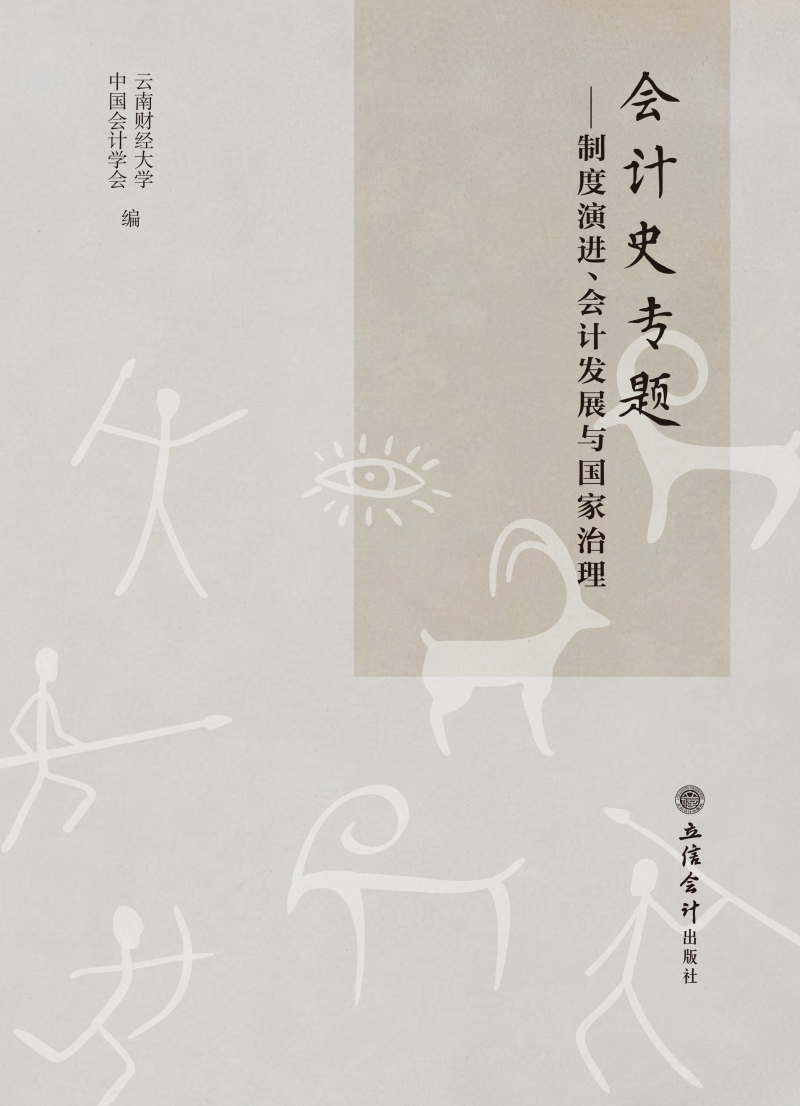 会计史专题
——制度演进、会计发展与国家治理
云南财经大学
中国会计学会
编
立信会计出版社